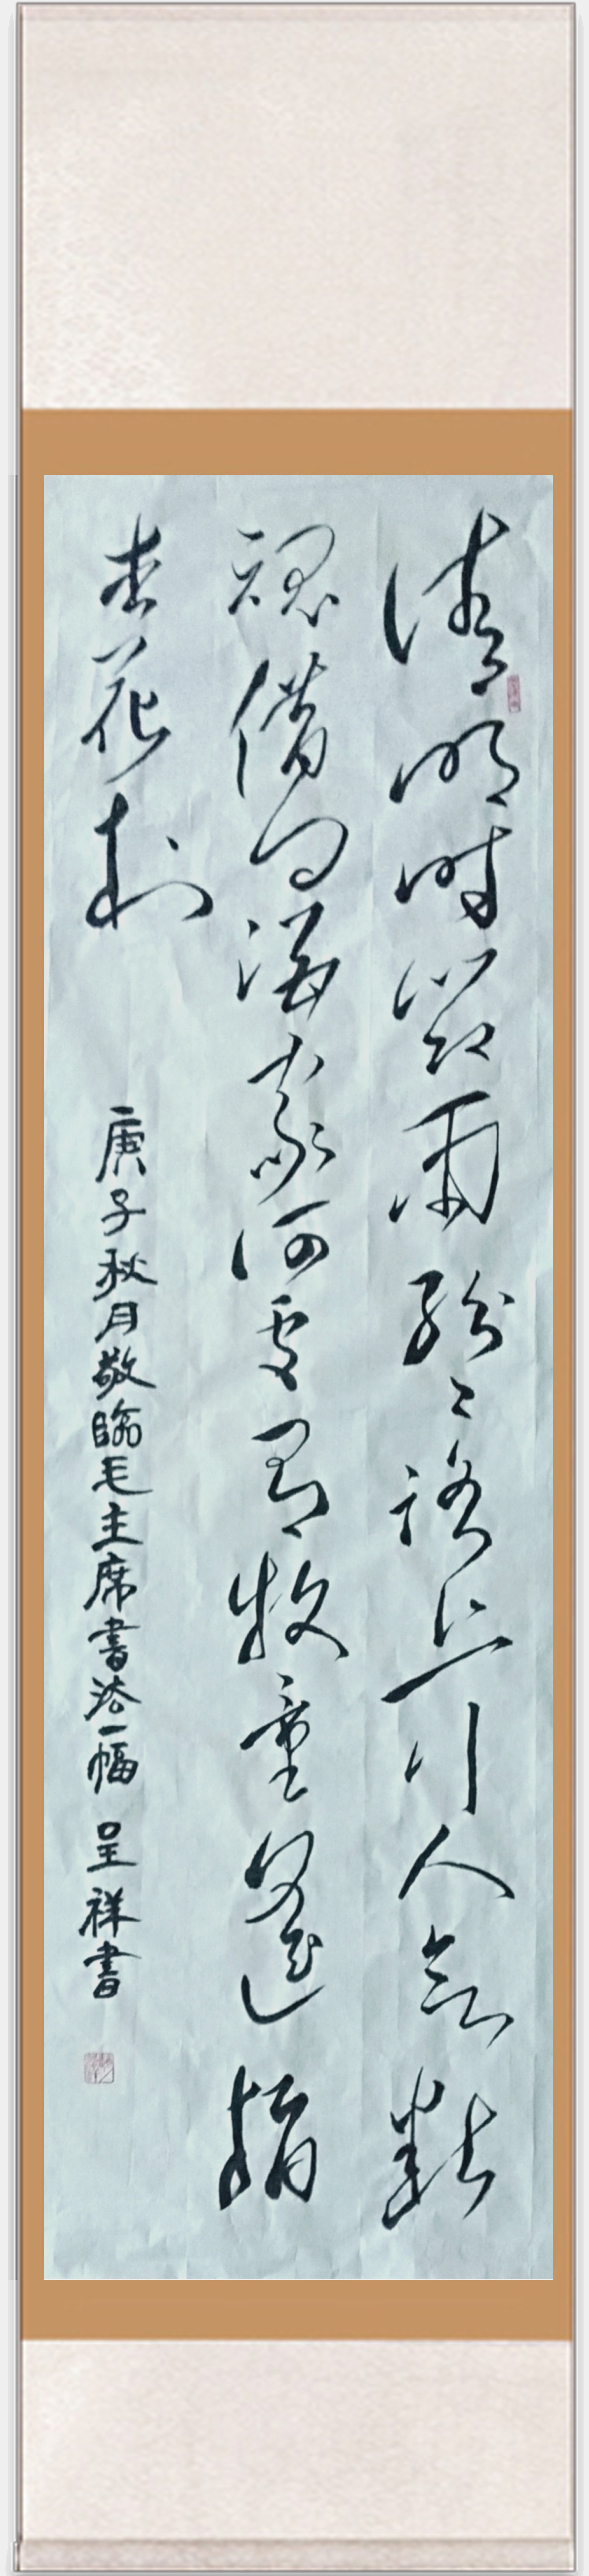 清明時節雨紛〻路上行人欲斷
魂借问酒家何處有牧童遥指
杏花村
庚子秋月敬臨毛主席書法一幅 呈祥書